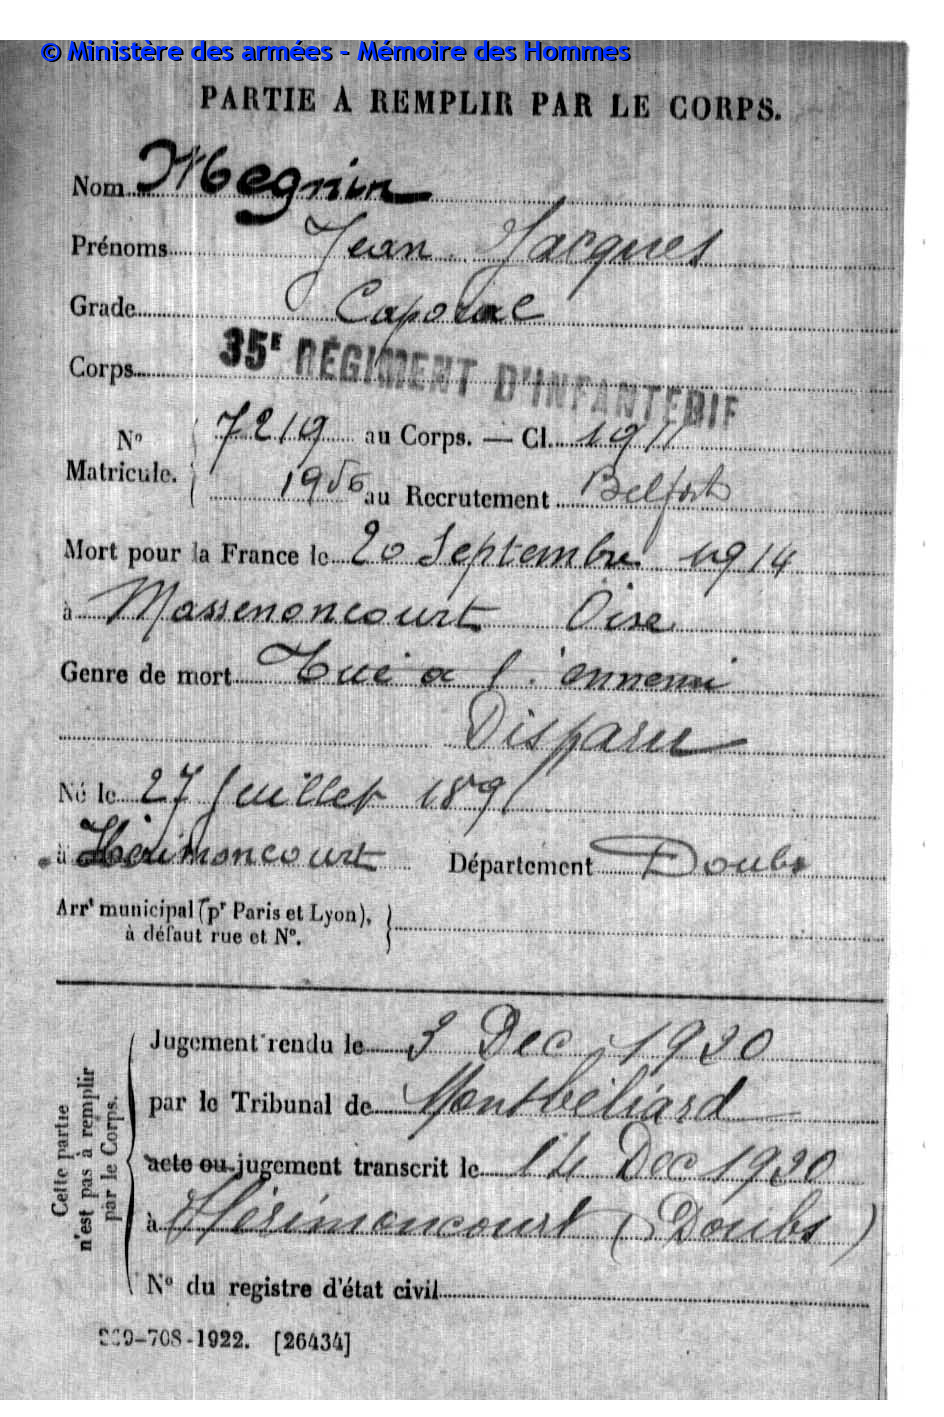 © Ministère des armées - Mémoire des Hommes
PARTIE A REMPLIR PAR LE CORPS.
Nom Megnin
Prénoms Jean Jacques
Grade Caporal
Corps 35E RÉGIMENT D'INFANTERIE
No Matricule. 7219 au Corps. — Cl. 1911
1956 au Recrutement Belfort
Mort pour la France le 20 Septembre 1914
à Massenoncourt Oise
Genre de mort Tué à l'ennemi
Disparu
Né le 27 Juillet 1891
à Hérimoncourt Département Doubs
Arrt municipal (pr Paris et Lyon),
à défaut rue et No.
Cette partie
n'est pas à remplir
par le Corps.
Jugement rendu le 3 Dec 1920
par le Tribunal de Montbéliard
acte ou jugement transcrit le 14 Dec 1920
à Hérimoncourt (Doubs)
No du registre d'état civil
-708-1922. [26434]